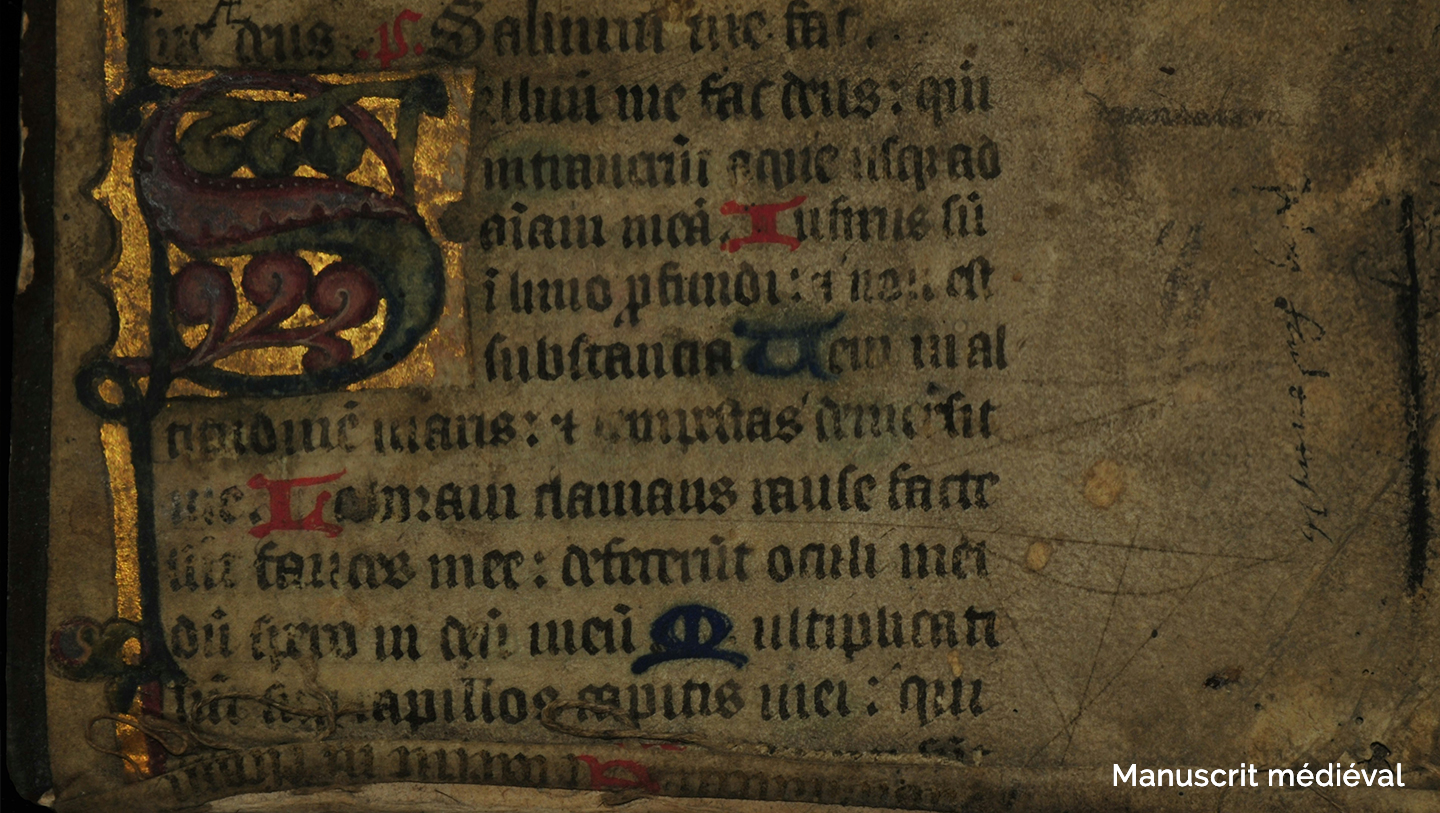 deus. p. Saluum me fac.
Saluũ me fac deus: qm̃
intrauerũt aque usq ad
aĩam meã. Infixus sũ
ĩ limo ꝓfundi: ⁊ non est
substancia Ueni in al
titudinẽ maris: ⁊ tempestas demersit
me. Laboraui clamans rause facte
sũt fauces mee: defecerũt oculi mei
dũ spero in deũ meũ Multiplicati
sũt capillos capitis mei: qui
Manuscrit médiéval